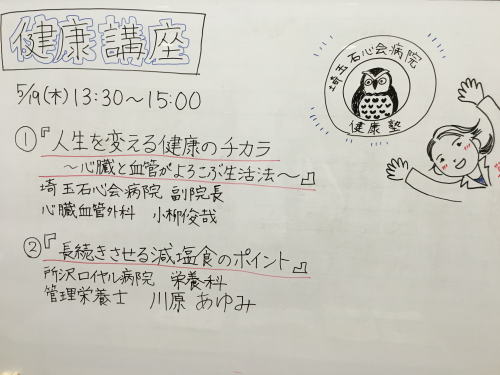 健康講座
5/19(木) 13:30～15:00
①『人生を変える健康のチカラ
～心臓と血管がよろこぶ生活法～』
埼玉石心会病院 副院長
心臓血管外科 小柳俊哉
②『長続きさせる減塩食のポイント』
所沢ロイヤル病院 栄養科
管理栄養士 川原あゆみ
埼玉石心会病院
健康塾